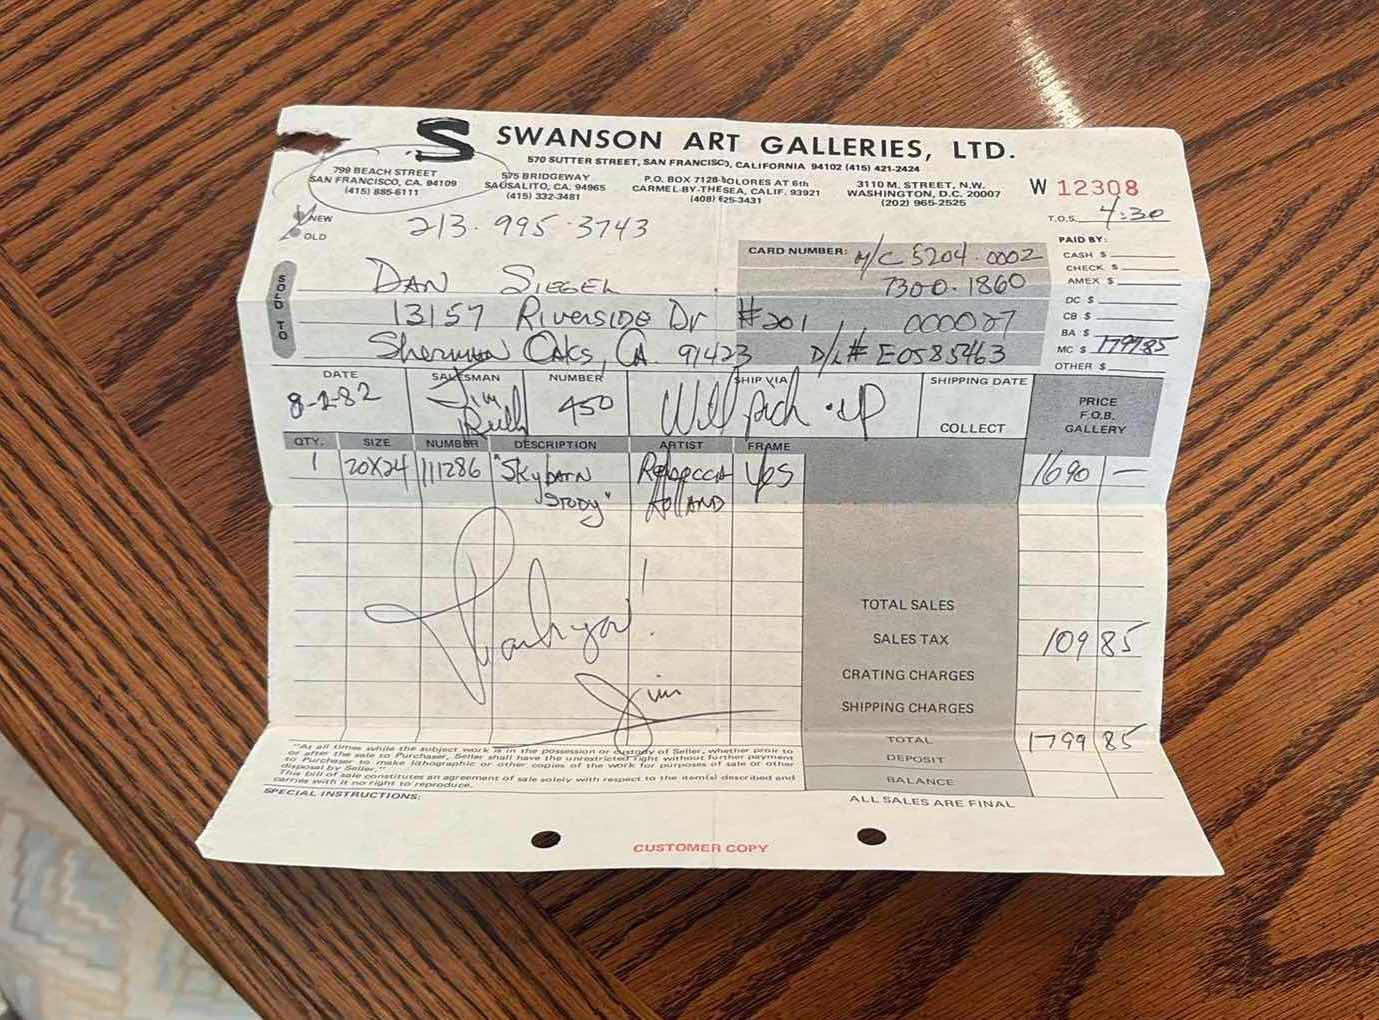 S SWANSON ART GALLERIES, LTD.
570 SUTTER STREET, SAN FRANCISCO, CALIFORNIA 94102 (415) 421-2424
799 BEACH STREET
SAN FRANCISCO, CA. 94109
(415) 885-6111
575 BRIDGEWAY
SAUSALITO, CA. 94965
(415) 332-3481
P.O. BOX 7128-DOLORES AT 6th
CARMEL-BY-THE-SEA, CALIF. 93921
(408) 625-3431
3110 M. STREET, N.W.
WASHINGTON, D.C. 20007
(202) 965-2525
W 12308
T.O.S. 4:30
NEW
OLD
213.995.3743
CARD NUMBER: M/C 5204.0002
7300.1860
000027
PAID BY:
CASH $
CHECK $
AMEX $
DC $
CB $
BA $
MC $ 1799.85
OTHER $
SOLD TO
DAN SIEGEL
13157 Riverside Dr #201
Sherman Oaks, CA. 91423 D/L# E0585463
DATE SALESMAN NUMBER SHIP VIA SHIPPING DATE
8-2-82 Jim 450 Will pick up
COLLECT
PRICE
F.O.B.
GALLERY
QTY. SIZE NUMBER DESCRIPTION ARTIST FRAME
1 20X24 111286 "Skybarn Rebecca Yes 1690 —
Study" Holland
Thank you!
Jim
TOTAL SALES
SALES TAX 109 85
CRATING CHARGES
SHIPPING CHARGES
TOTAL 1799 85
DEPOSIT
BALANCE
"At all times while the subject work is in the possession or custody of Seller, whether proir to
or after the sale to Purchaser, Seller shall have the unrestricted right without further payment
to Purchaser to make lithographic or other copies of the work for purposes of sale or other
disposal by Seller."
This bill of sale constitutes an agreement of sale solely with respect to the item(s) described and
carries with it no right to reproduce.
SPECIAL INSTRUCTIONS:
ALL SALES ARE FINAL
CUSTOMER COPY